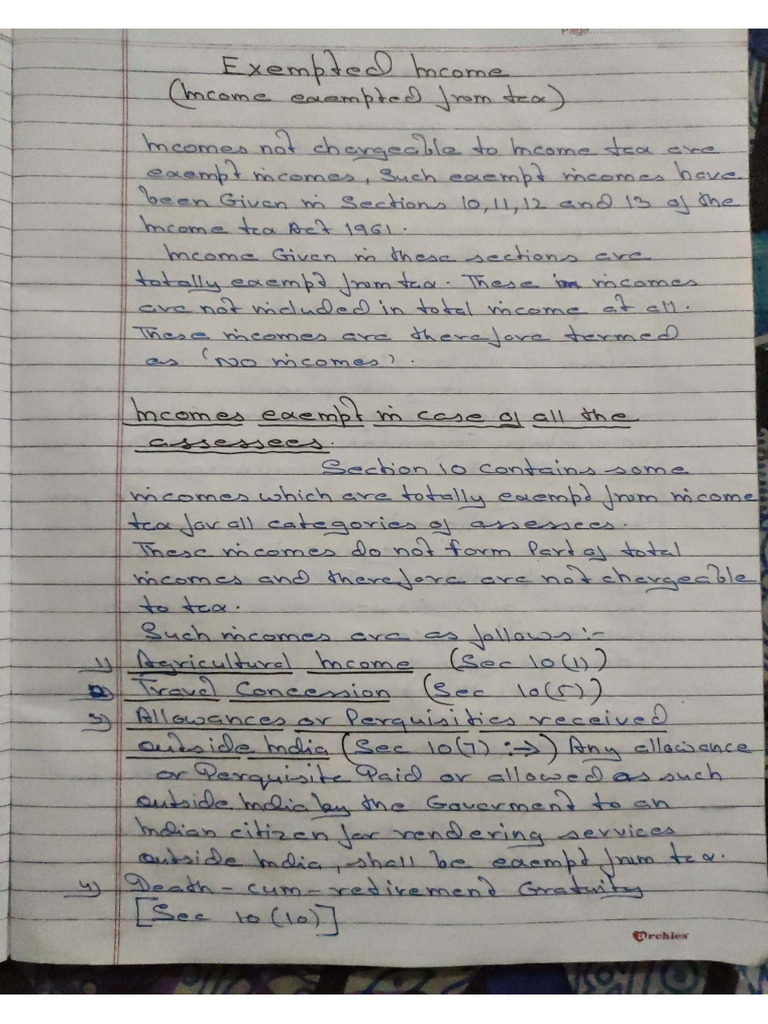 Page
Exempted Income
(Income exempted from tax)
Incomes not chargeable to Income tax are
exempt incomes, Such exempt incomes have
been Given in Sections 10, 11, 12 and 13 of the
Income tax Act 1961.
Income Given in these sections are
totally exempt from tax. These in incomes
are not included in total income at all.
These incomes are therefore termed
as 'No incomes'.
Incomes exempt in case of all the
assessees.
Section 10 contains some
incomes which are totally exempt from income
tax for all categories of assessees.
These incomes do not form Part of total
incomes and therefore are not chargeable
to tax.
Such incomes are as follows :-
1) Agricultural Income (Sec 10(1))
2) Travel Concession (Sec 10(5))
3) Allowances or Perquisities received
outside India (Sec 10(7) :→) Any allowance
or Perquisite Paid or allowed as such
outside India by the Goverment to an
Indian citizen for rendering services
outside India, shall be exempt from tax.
4) Death-cum-retirement Gratuity
[Sec 10(10)]
Archies